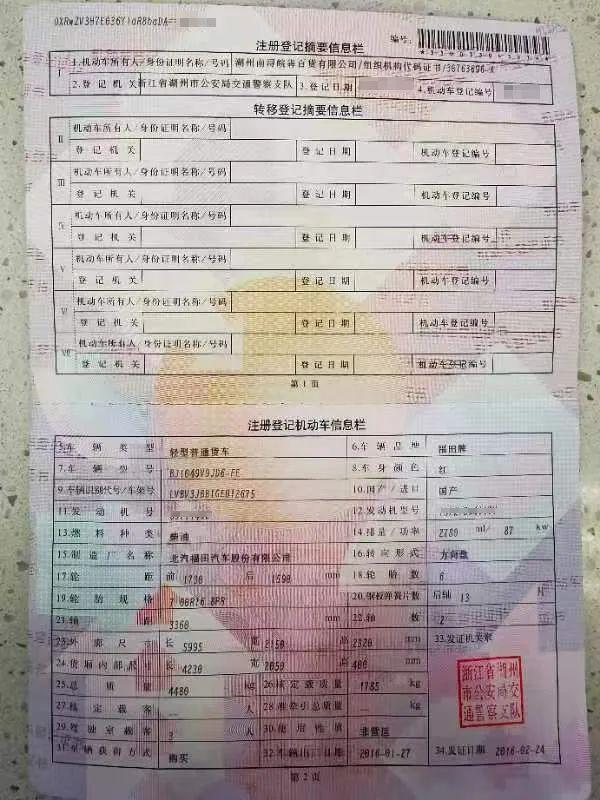 注册登记摘要信息栏
编号:
I
1.机动车所有人/身份证明名称/号码
/组织机构代码证书/
2.登记机关 浙江省湖州市公安局交通警察支队 3.登记日期 4.机动车登记编号
转移登记摘要信息栏
II 机动车所有人/身份证明名称/号码
登记机关 登记日期 机动车登记编号
III 机动车所有人/身份证明名称/号码
登记机关 登记日期 机动车登记编号
IV 机动车所有人/身份证明名称/号码
登记机关 登记日期 机动车登记编号
V 机动车所有人/身份证明名称/号码
登记机关 登记日期 机动车登记编号
VI 机动车所有人/身份证明名称/号码
登记机关 登记日期 机动车登记编号
VII 机动车所有人/身份证明名称/号码
登记机关 登记日期 机动车登记编号
第1页
注册登记机动车信息栏
5.车辆类型 轻型普通货车 6.车辆品牌 福田牌
7.车辆型号 BJ1049V9JD6-FE 8.车身颜色 红
9.车辆识别代号/车架号 10.国产/进口 国产
11.发动机号 12.发动机型号
13.燃料种类 柴油 14.排量/功率 2780 ml/ 87 kw
15.制造厂名称 北汽福田汽车股份有限公司 16.转向形式 方向盘
17.轮距 前 1730 后 1590 mm 18.轮胎数 6
19.轮胎规格 7.00R16 8PR 20.钢板弹簧片数 后轴 13 片
21.轴距 3360 mm 22.轴数 2
23.外廓尺寸 长 5995 宽 2150 高 2320 mm 33.发证机关章
24.货厢内部尺寸 长 4230 宽 2050 高 400 mm
浙江省湖州
市公安局交
通警察支队
25.总质量 4480 kg 26.核定载质量 1785 kg
27.核定载客 人 28.准牵引总质量 kg
29.驾驶室载客 3 人 30.使用性质 非营运
31.车辆获得方式 购买 32.车辆出厂日期 2016-01-27 34.发证日期 2016-02-24
第2页